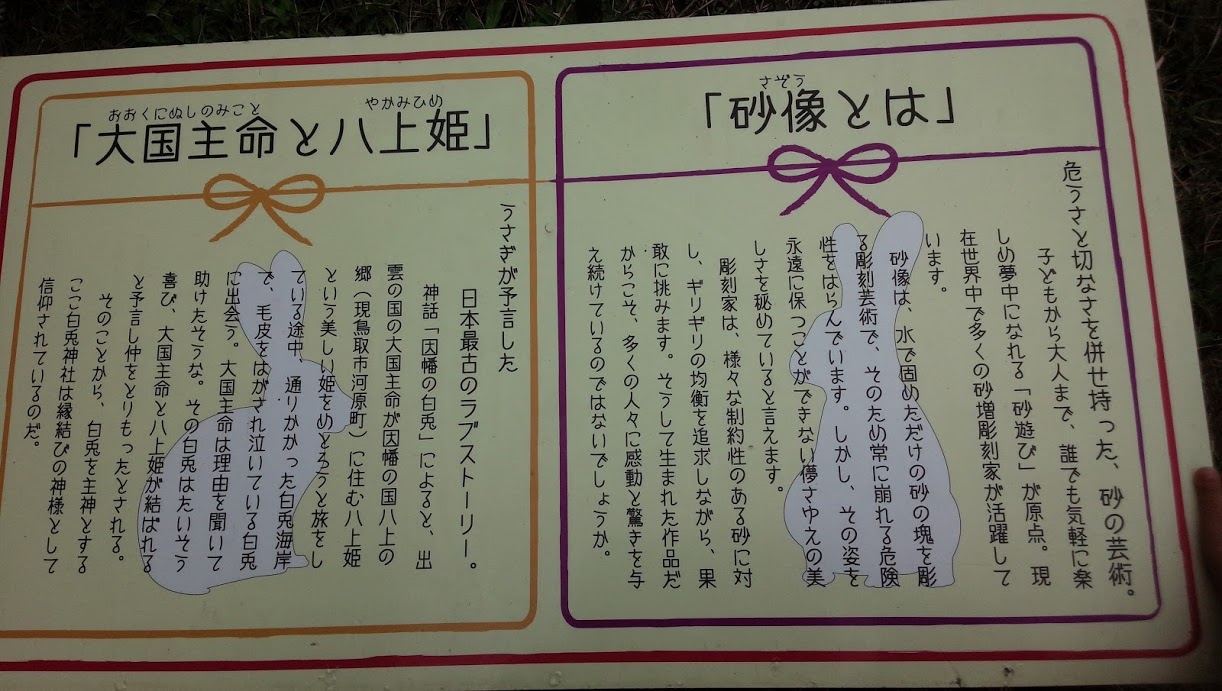 さぞう
「砂像とは」
危うさと切なさを併せ持った、砂の芸術。
子どもから大人まで、誰でも気軽に楽
しめ夢中になれる「砂遊び」が原点。現
在世界中で多くの砂増彫刻家が活躍して
います。
砂像は、水で固めただけの砂の塊を彫
る彫刻芸術で、そのため常に崩れる危険
性をはらんでいます。しかし、その姿を
永遠に保つことができない儚さゆえの美
しさを秘めていると言えます。
彫刻家は、様々な制約性のある砂に対
し、ギリギリの均衡を追求しながら、果
敢に挑みます。そうして生まれた作品だ
からこそ、多くの人々に感動と驚きを与
え続けているのではないでしょうか。
おおくにぬしのみこと やかみひめ
「大国主命と八上姫」
うさぎが予言した
日本最古のラブストーリー。
神話「因幡の白兎」によると、出
雲の国の大国主命が因幡の国八上の
郷（現鳥取市河原町）に住む八上姫
という美しい姫をめとろうと旅をし
ている途中、通りかかった白兎海岸
で、毛皮をはがされ泣いている白兎
に出会う。大国主命は理由を聞いて
助けたそうな。その白兎はたいそう
喜び、大国主命と八上姫が結ばれる
と予言し仲をとりもったとされる。
そのことから、白兎を主神とする
ここ白兎神社は縁結びの神様として
信仰されているのだ。